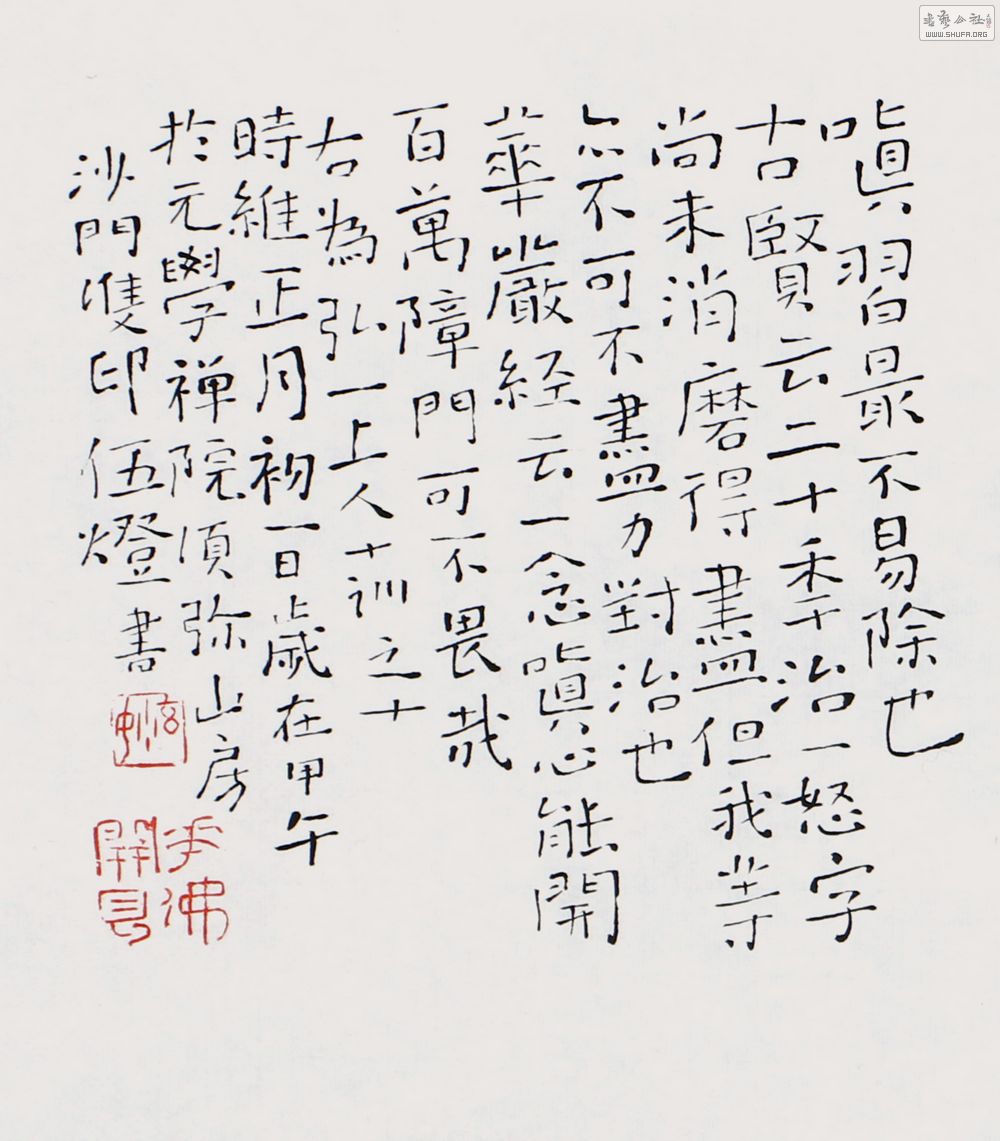 嗔習最不易除也
古賢云二十季治一怒字
尚未消磨得盡但我等
亦不可不盡力對治也
華嚴経云一念嗔心能開
百萬障門可不畏哉
右為弘一上人十訓之十
時維正月初一日歲在甲午
於元學禅院湏弥山房
沙門雙印伍燈書
開
WWW.SHUFA.ORG